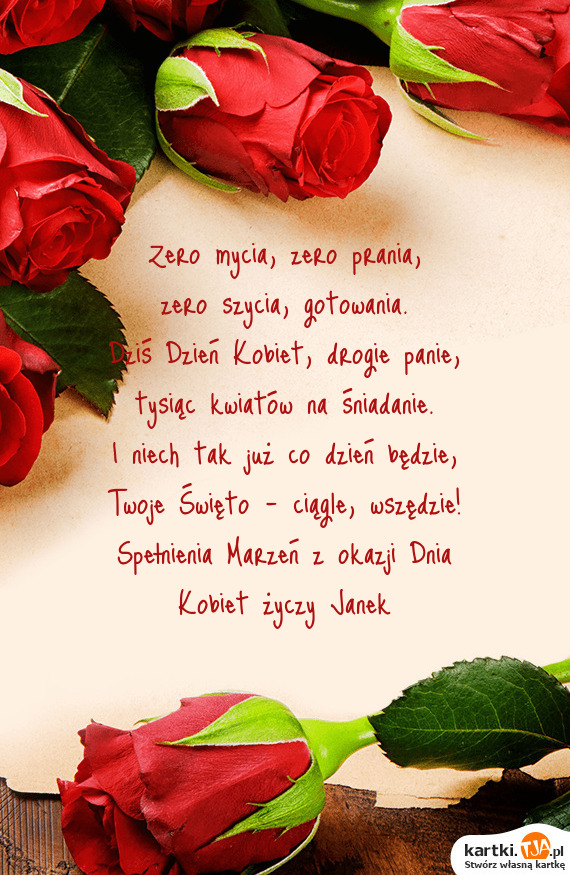 Zero mycia, zero prania,
zero szycia, gotowania.
Dziś Dzień Kobiet, drogie panie,
tysiąc kwiatów na śniadanie.
I niech tak już co dzień będzie,
Twoje Święto - ciągle, wszędzie!
Spełnienia Marzeń z okazji Dnia
Kobiet życzy Janek
kartki.TJA.pl
Stwórz własną kartkę